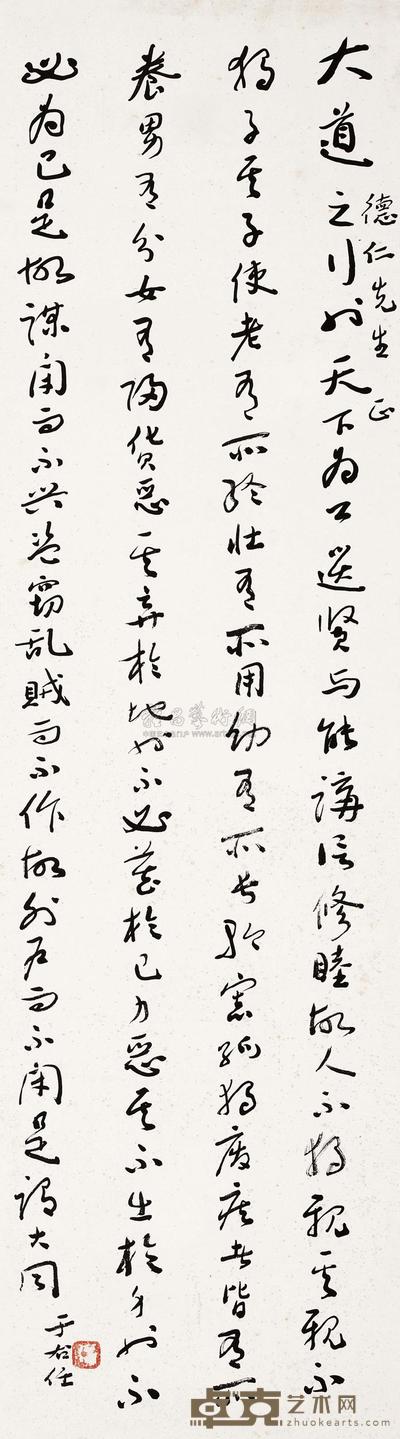 大道之行也天下為公選賢與能講信修睦故人不獨親其親不
德仁先生正
獨子其子使老有所終壯有所用幼有所長矜寡孤獨廢疾者皆有所
養男有分女有歸貨惡其棄於地也不必藏於己力惡其不出於身也不
必為己是故謀閉而不興盜竊亂賊而不作故外戶而不閉是謂大同
于右任
卓克艺术网
zhuokearts.com